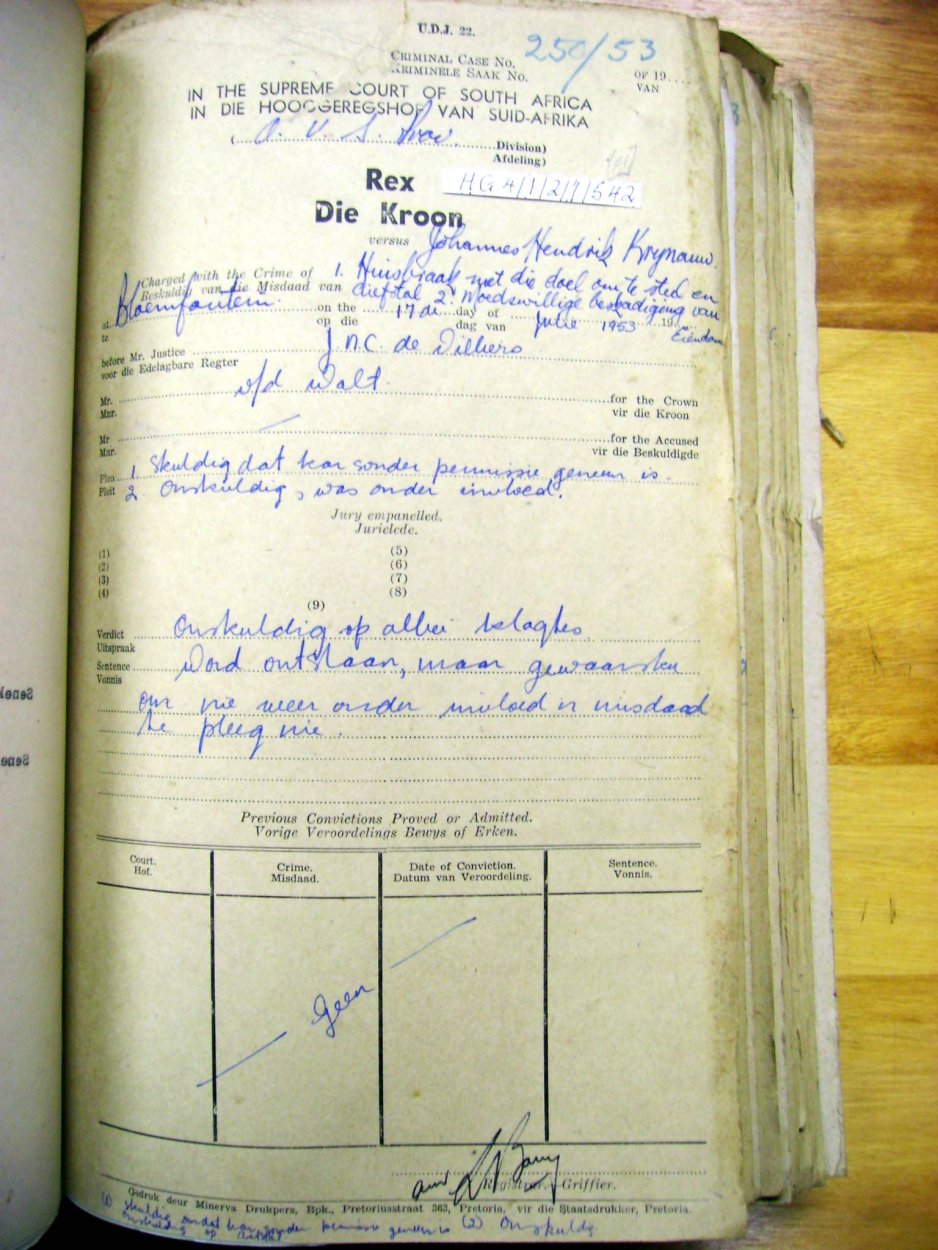 U.D.J. 22.
CRIMINAL CASE NO. 250/53 OF 19....
KRIMINELE SAAK NO. VAN
IN THE SUPREME COURT OF SOUTH AFRICA
IN DIE HOOGGEREGSHOF VAN SUID-AFRIKA
(O. V. S. Prov. Division)
Afdeling)
Rex HG 4/1/2/1/542
Die Kroon
versus Johannes Hendrik Krynauw.
Charged with the Crime of 1. Huisbraak met die doel om te steel en
Beskuldig van die Misdaad van diefstal 2. Moedswillige beskadiging van
Eiendom
at Bloemfontein. on the 17de day of Julie 1953 19
te op die dag van
before Mr. Justice J.N.C. de Villiers
voor die Edelagbare Regter
Mr. v/d Walt. for the Crown
Mnr. vir die Kroon
Mr for the Accused
Mnr. vir die Beskuldigde
Plea 1. Skuldig dat kar sonder permissie geneem is.
Pleit 2. Onskuldig, was onder invloed.
Jury empanelled.
Jurielede.
(1) (5)
(2) (6)
(3) (7)
(4) (8)
(9)
Verdict Onskuldig op albei klagtes.
Uitspraak
Sentence Word ontslaan, maar gewaarsku
Vonnis
om nie weer onder invloed 'n misdaad
te pleeg nie.
Previous Convictions Proved or Admitted.
Vorige Veroordelings Bewys of Erken.
Court. Crime. Date of Conviction. Sentence.
Hof. Misdaad. Datum van Veroordeling. Vonnis.
Geen
Registrar.—Griffier.
Gedruk deur Minerva Drukpers, Bpk., Pretoriusstraat 363, Pretoria, vir die Staatsdrukker, Pretoria.
(1) Skuldig omdat kar sonder permissie geneem is (2) Onskuldig
Onskuldig op